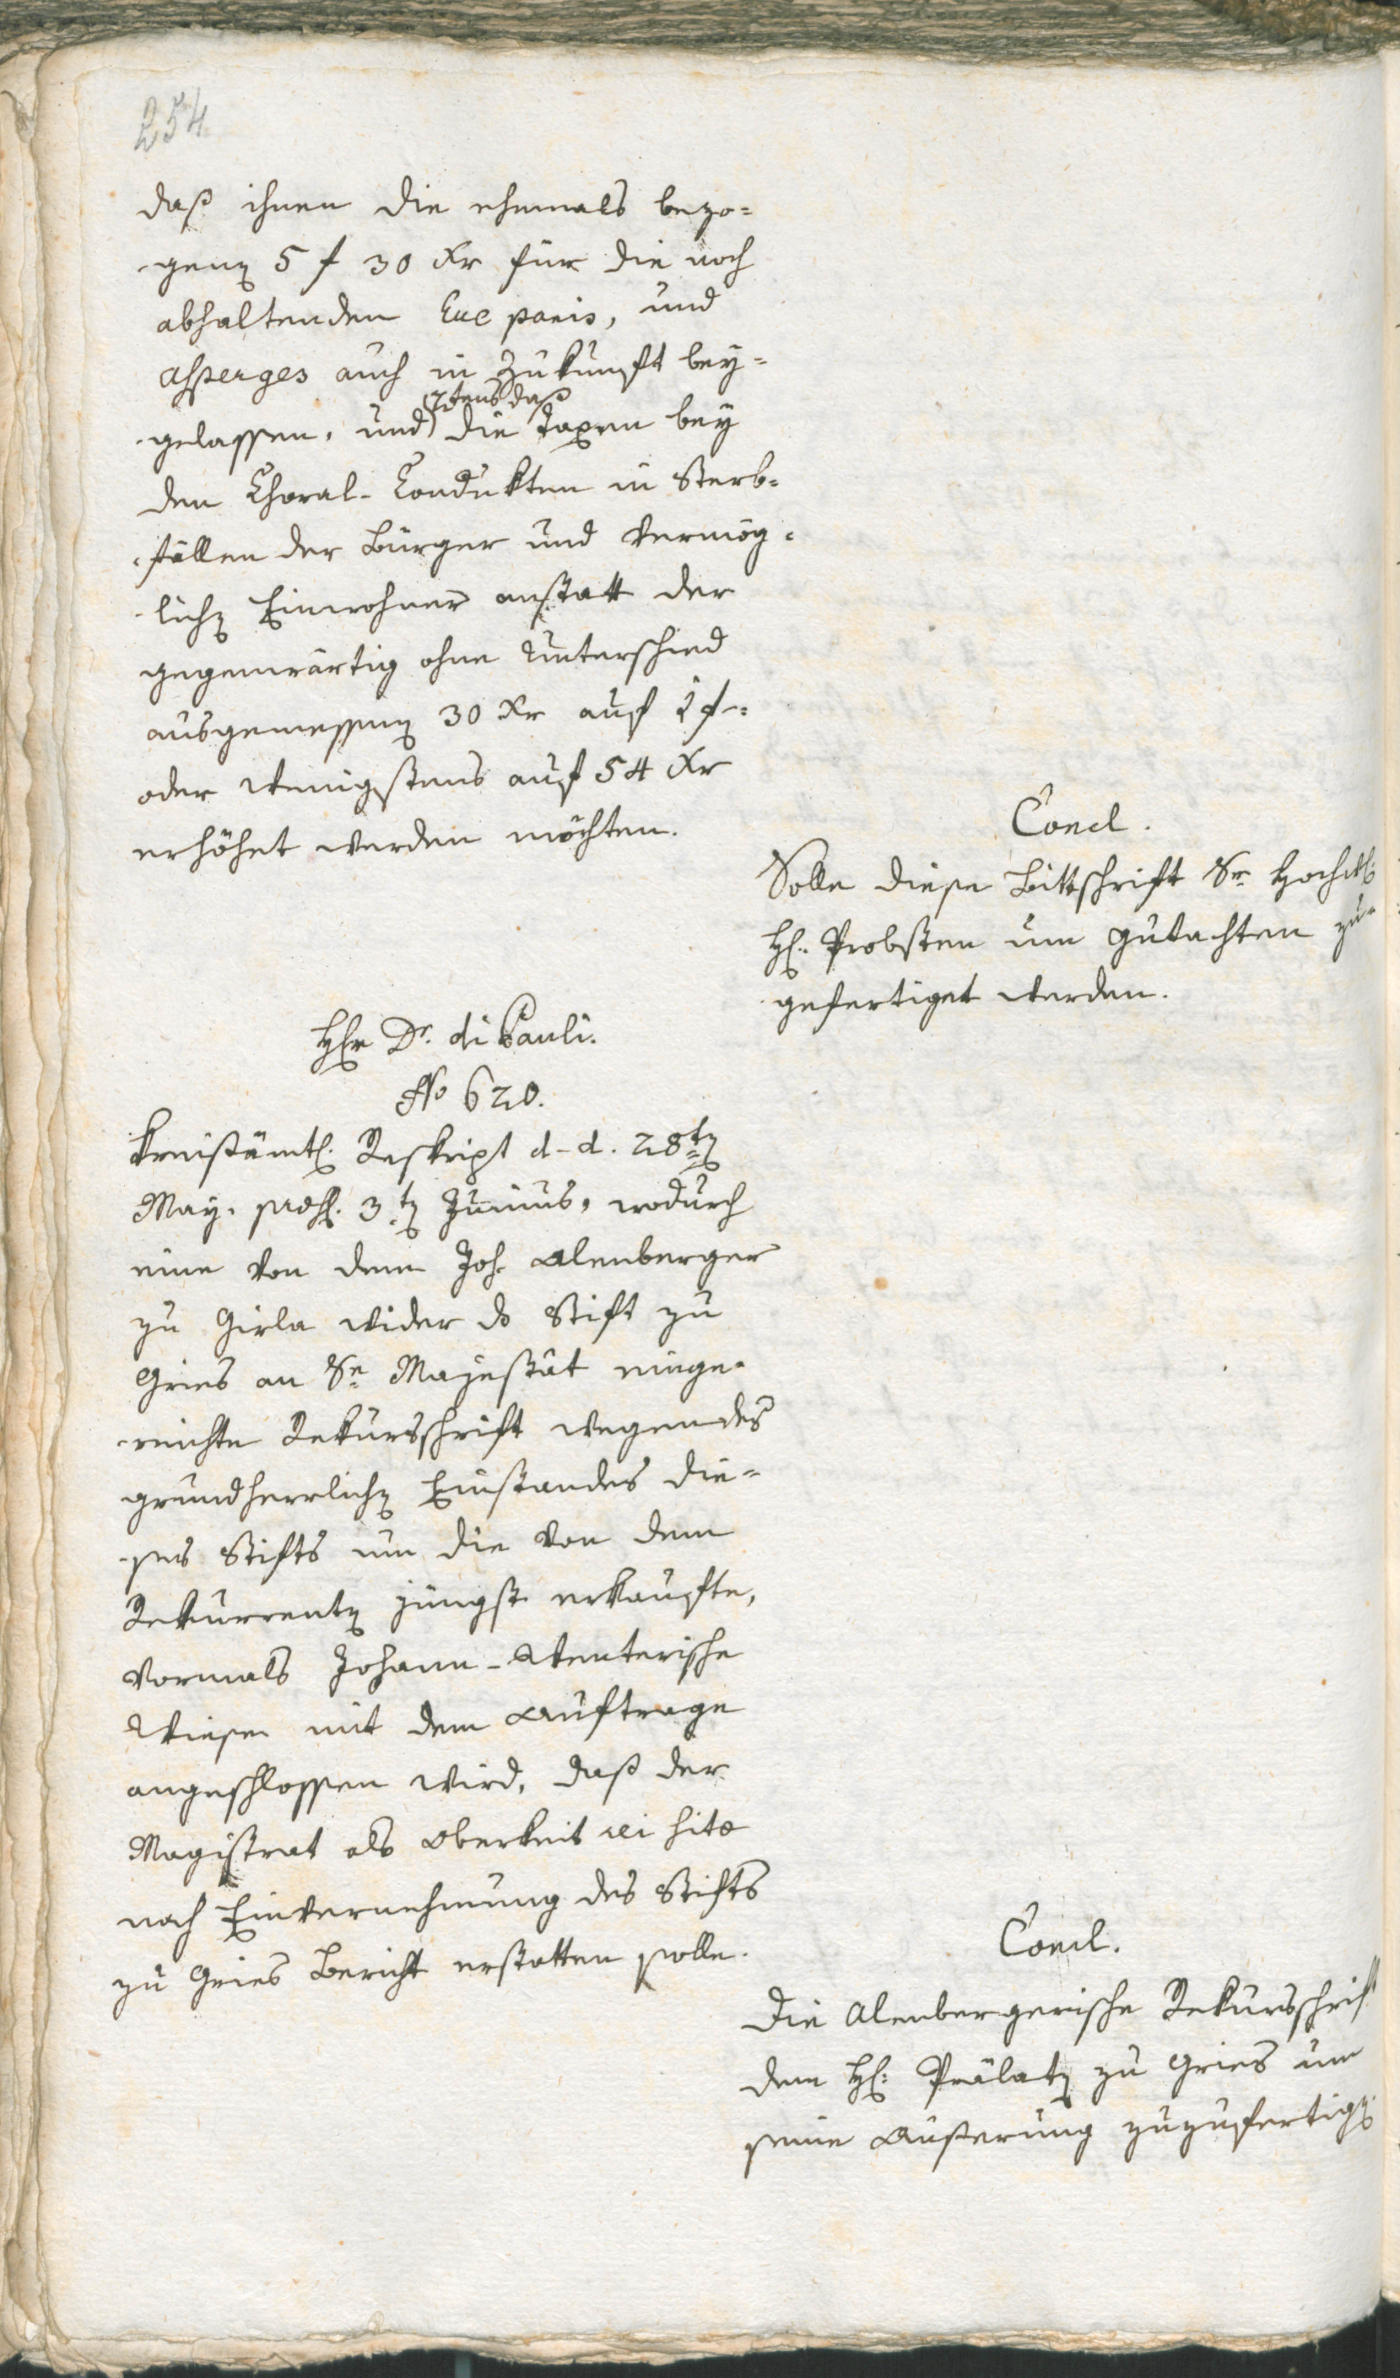 254
daß ihnen die ehemals bezo=
genen 5 f 30 Xr für die noch
abhaltenden Ecce panis, und
asperges auch in Zukunft bey=
gelassen, und 2tens daß die Taxen bey
den Choral-Condukten in Sterb=
fällen der Bürger und vermög=
lichen Einwohner anstatt der
gegenwärtig ohne Unterschied
ausgemessenen 30 Xr auf 1 f
oder wenigstens auf 54 Xr
erhöhet werden möchten.
Concl.
Solle diese Bittschrift Sr
H. Probsten um Gutachten zu=
gefertiget werden.
Hr Dr. di Pauli.
No 620.
Kreisämtl. Reskript d. d. 28ten
May. 3ten Junius, wodurch
eine von dem Joh. Alenberger
zu Girla wider das Stift zu
Gries an Se Majestät einge=
reichte Rekursschrift wegen des
grundherrlichen Einstandes die=
ses Stifts um die von dem
Rekurrenten jüngst erkaufte,
vormals Johann-Atenterische
Wiesen mit dem Auftrage
angeschlossen wird, daß der
Magistrat als Oberkeit rei sitae
nach Einvernehmung des Stifts
zu Gries Bericht erstatten solle.
Concl.
Die Alenbergerische Rekursschrift
dem H: Prälaten zu Gries um
seine Äußerung zuzufertigen.